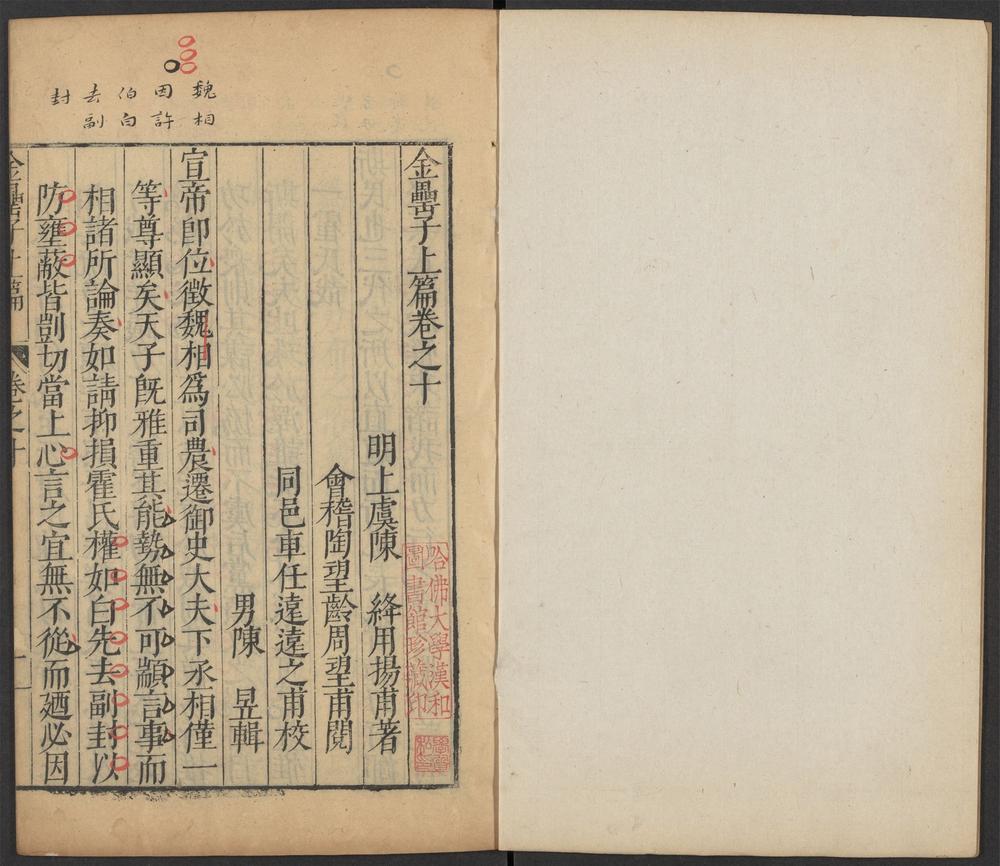 魏相
因許
伯白
去副
封
金罍子上篇卷之十
明上虞陳 絳用揚甫著
會稽陶望齡周望甫閱
同邑車任遠遠之甫校
男陳 昱輯
宣帝卽位徵魏相爲司農遷御史大夫下丞相僅一
等尊顯矣天子旣雅重其能勢無不可顓言事而
相諸所論奏如請抑損霍氏權如白先去副封以
防壅蔽皆剴切當上心言之宜無不從而廼必因
金罍子上篇 卷之十 一
哈佛大學漢和
圖書館珍藏印